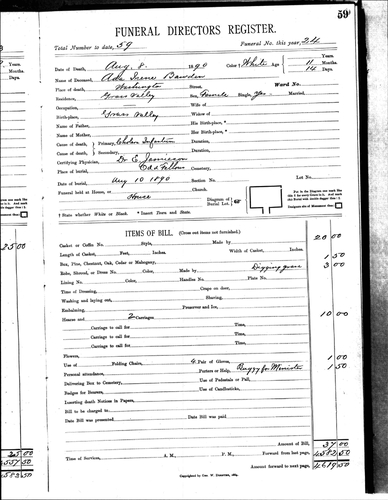 59
FUNERAL DIRECTORS REGISTER.
Total Number to date, 59 Funeral No. this year, 24
Date of Death, Aug 8. 1890 Color † White Age Years.
11 Months.
14 Days.
Name of Deceased, Ada Irene Bawden
Place of death, Washington Street. Ward No.
Residence, Grass Valley Sex, Female Single, Yes. Married,
Occupation, Wife of
Birth-place, * Grass Valley Widow of
Name of Father, His Birth-place, *
Name of Mother, Her Birth-place, *
Cause of death, Primary, Cholera Infantum Duration,
Cause of death, Secondary, Duration,
Certifying Physician, Dr E. Jamieson
Place of burial, Odd Fellows Cemetery,
Date of burial, Aug 10 1890 Section No. Lot No.
Funeral held at Home, or House Church. Diagram of Burial Lot.
† State whether White or Black. * Insert Town and State.
ITEMS OF BILL. (Cross out items not furnished.)
Casket or Coffin No. Style, Made by 20 00
Length of Casket, Feet, Inches. Width of Casket, Inches.
Box, Pine, Chestnut, Oak, Cedar or Mahogany, 1 50
Robe, Shroud, or Dress No. Color, Made by Digging grave 3 00
Lining No. Color, Handles No. Plate No.
Time of Dressing, Crape on door,
Washing and laying out, Shaving,
Embalming, Preserver and Ice,
Hearse and 2 Carriages 10 00
Carriage to call for Time,
Carriage to call for Time,
Carriage to call for Time,
Carriage to call for Time,
Flowers,
Use of Folding Chairs, 4 Pair of Gloves, 1 00
Personal attendance, Porters or Help, Buggy for Minister 1 50
Delivering Box to Cemetery, Use of Pedestals or Pall,
Badges for Bearers, Use of Candlesticks,
Inserting death Notices in Papers,
Bill to be charged to
Date Bill was presented Date Bill was paid
Amount of Bill, 37 00
Time of Services, A. M., P. M., Forward from last page, 4582 50
Amount forward to next page, 4619 50